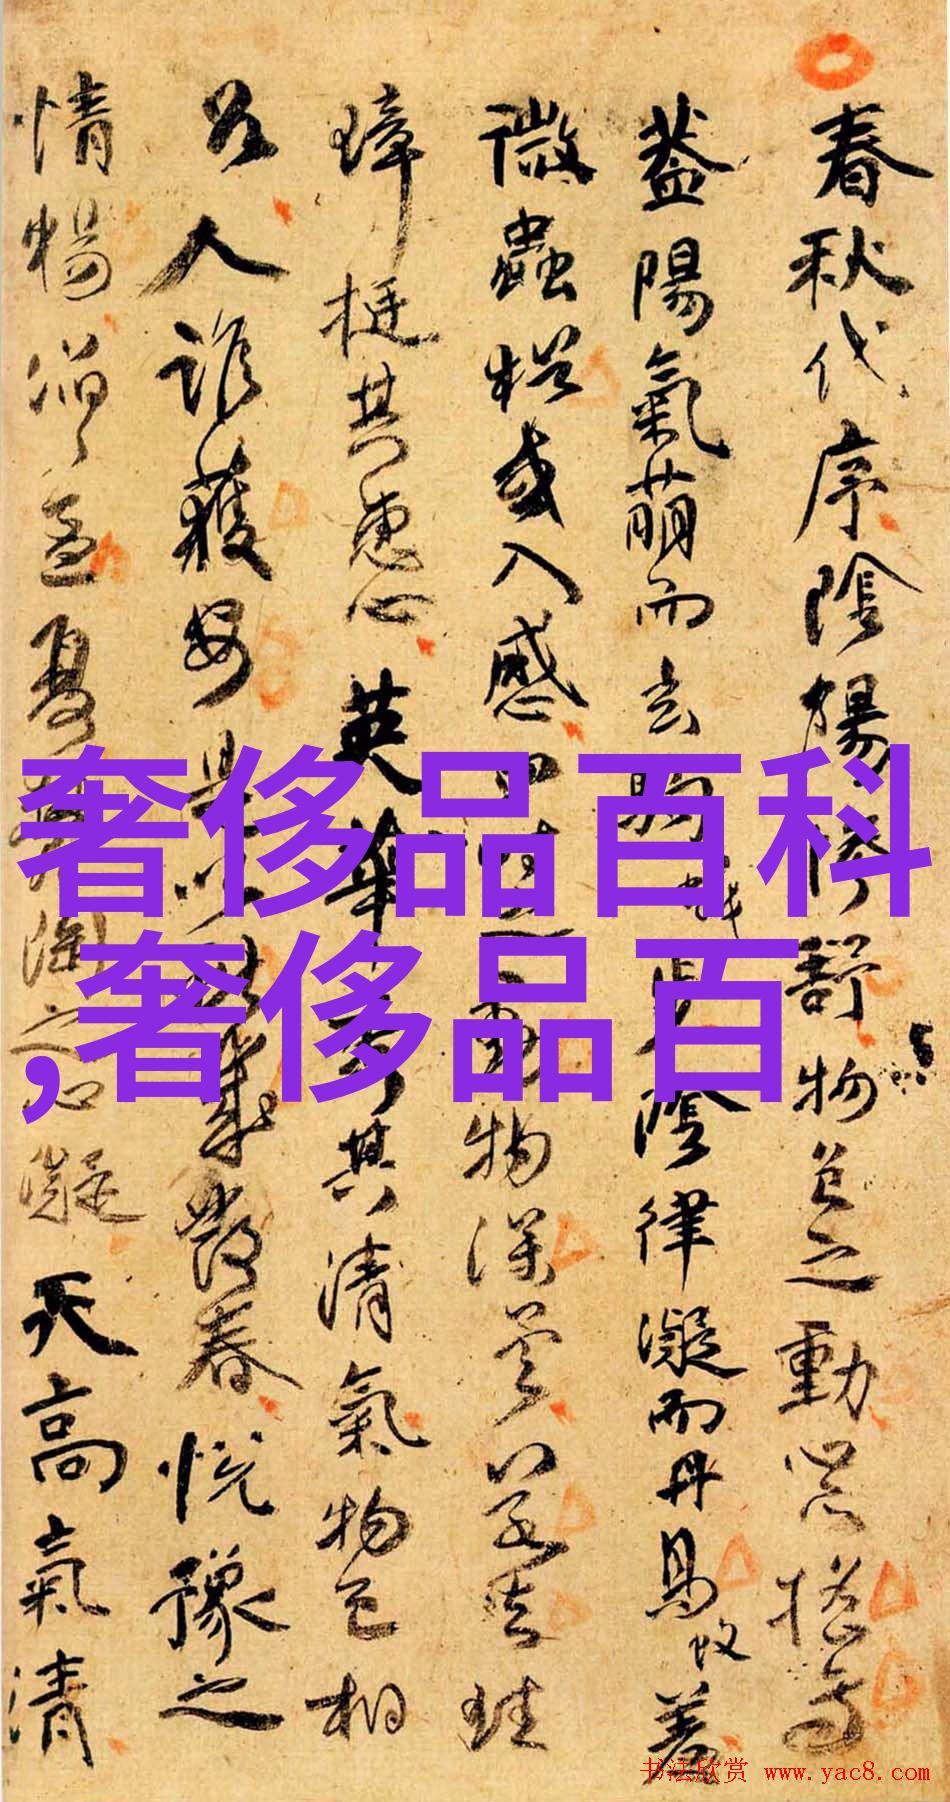 春秋代序陰陽慘舒物色之動心亦搖焉
蓋陽氣萌而玄駒步陰律凝而丹鳥羞
微蟲猶或入感四時之動物深矣若夫珪
璋挺其惠心英華秀其清氣物色相
召人誰獲安是以獻歲發春悅豫之
情暢滔滔孟夏鬱陶之心凝天高氣清
奢侈品百科
,奢侈品百
书法欣赏 www.yac8.com